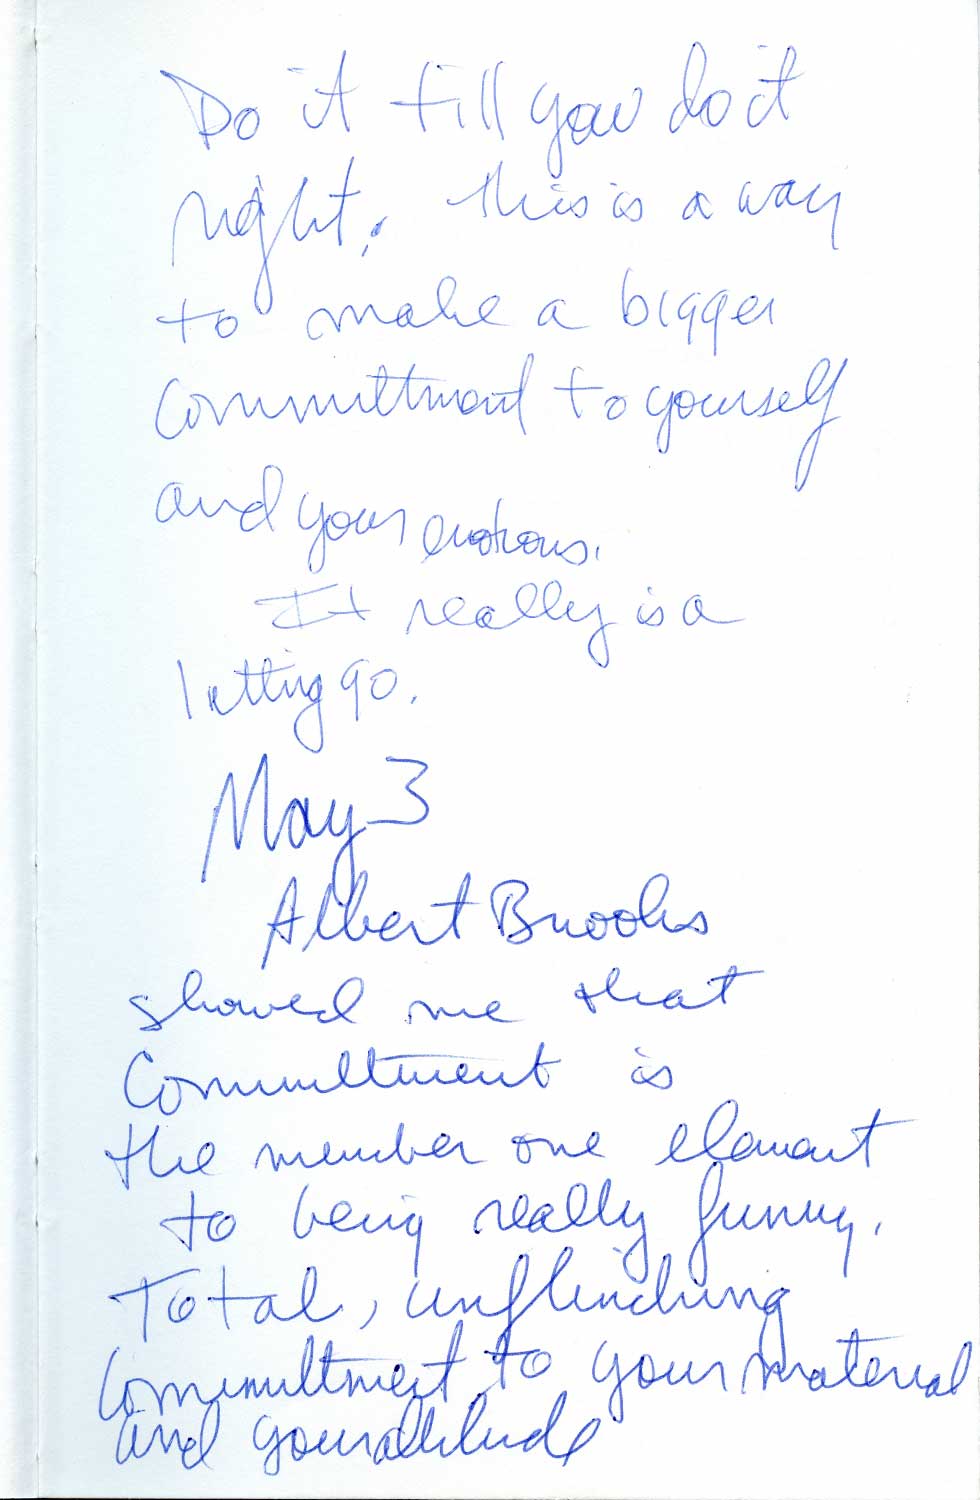 Do it till you do it
right. This is a way
to make a bigger
committment to yourself
and your emotions.
It really is a
letting go.
May 3
Albert Brooks
showed me that
Committment is
the number one element
to being really funny.
Total, unflinching
committment to your material
and your attitude